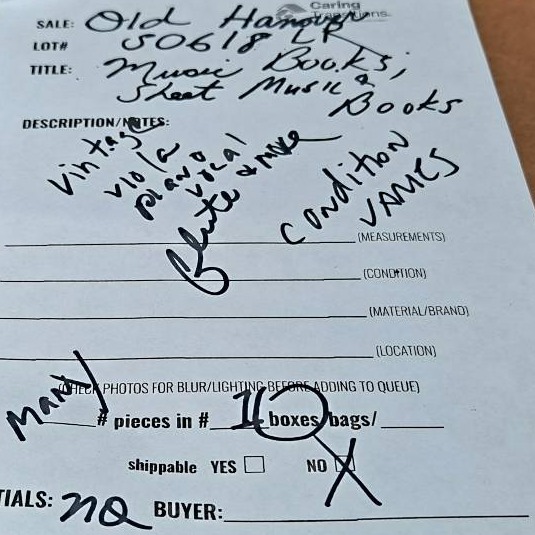 Caring
Transitions.
SALE: Old Hanover
LOT# 50618 LR
TITLE: Music Books,
Sheet Music &
Books
DESCRIPTION/NOTES:
vintage
viola
piano
vocal
flute & more
condition
VARIES
(MEASUREMENTS)
(CONDITION)
(MATERIAL/BRAND)
(LOCATION)
(CHECK PHOTOS FOR BLUR/LIGHTING BEFORE ADDING TO QUEUE)
Many # pieces in # boxes/bags/
shippable YES NO X
TIALS: BUYER: